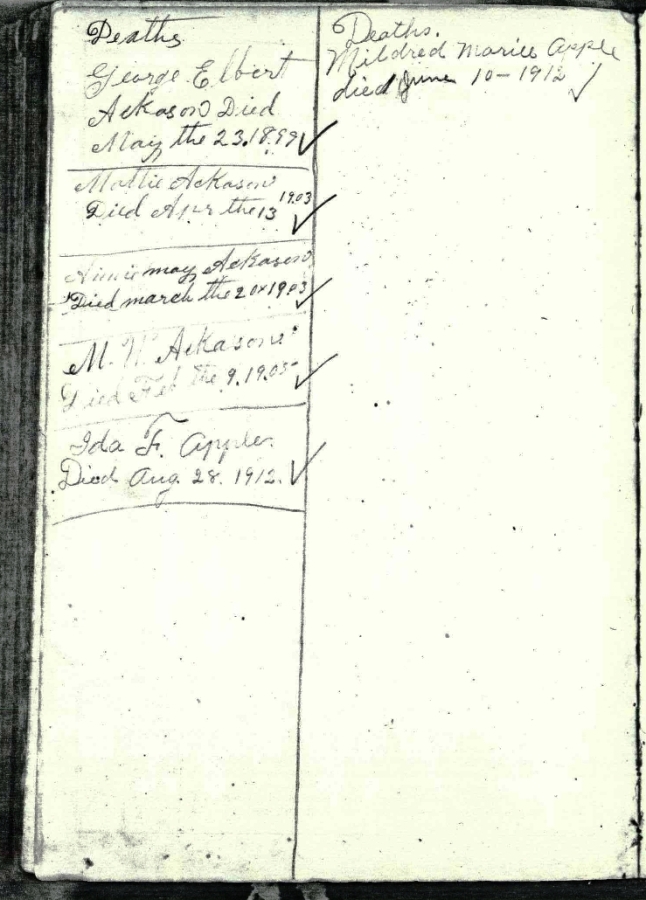 Deaths
George Elbert
Ackason Died
May the 23.1899
Mattie Ackason
Died Apr the 13 1903
Annie may Ackason
Died march the 20 1903
M. W. Ackason
Died Feb the 9.1905
Ida F. Apple.
Died Aug. 28. 1912.
Deaths.
Mildred Mariee Apple
died June 10-1912